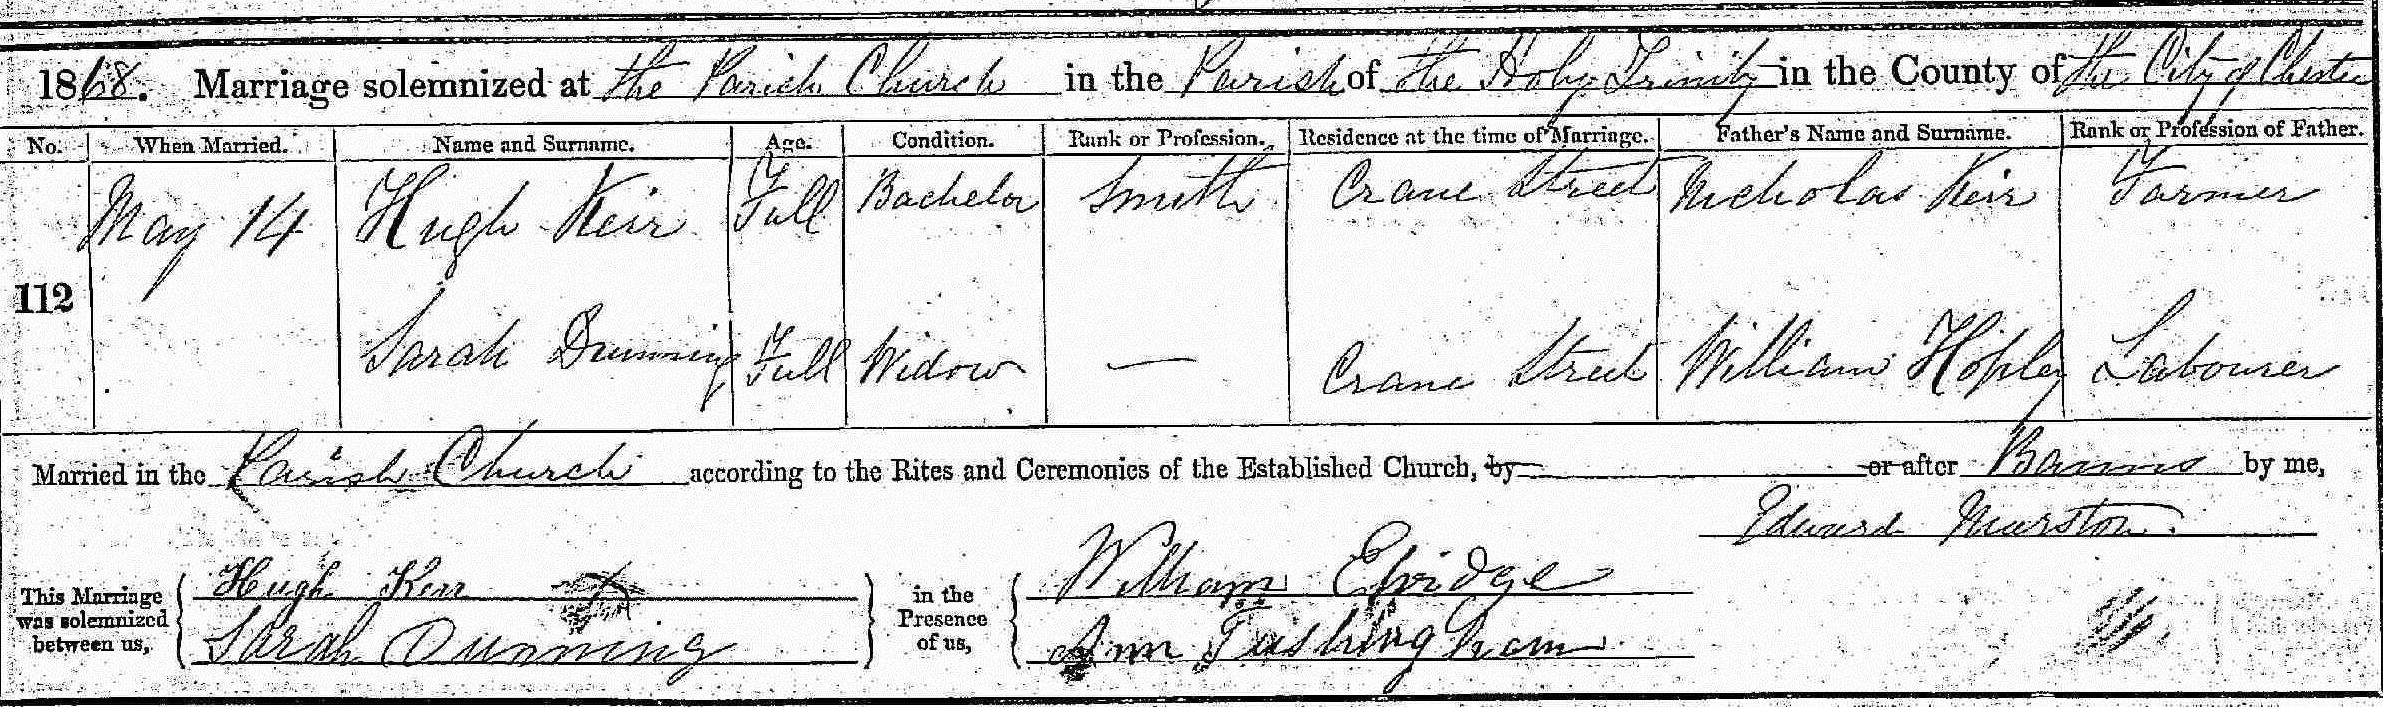 1868. Marriage solemnized at the Parish Church in the Parish of the Holy Trinity in the County of the City of Chester
No. When Married. Name and Surname. Age. Condition. Rank or Profession. Residence at the time of Marriage. Father's Name and Surname. Rank or Profession of Father.
May 14 Hugh Keir Full Bachelor Smith Crane Street Nicholas Keir Farmer
112
Sarah Dunning Full Widow — Crane Street William Hopley Labourer
Married in the Parish Church according to the Rites and Ceremonies of the Established Church, by or after Banns by me,
Edward Marston.
This Marriage was solemnized between us, { Hugh Keir } in the Presence of us, { William
Sarah Dunning Ann Tushingham